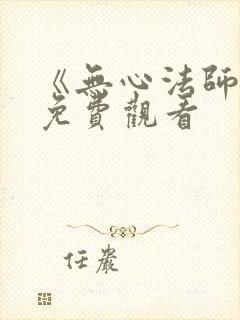 《無心法師
免費觀看
任嚴